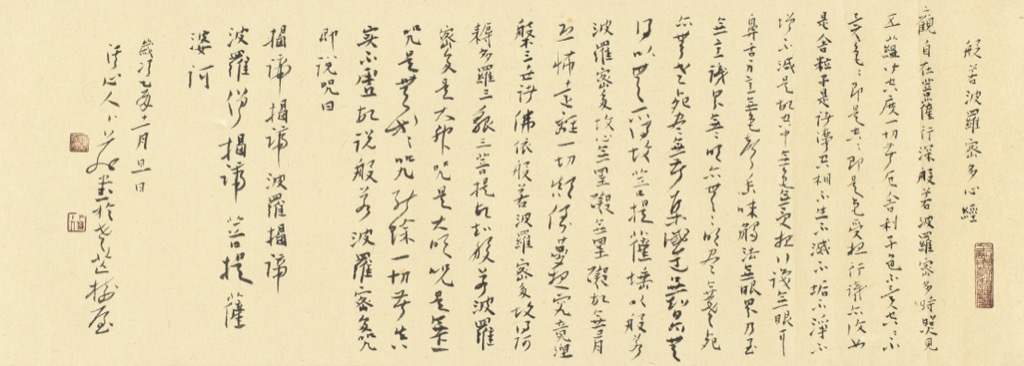 般若波羅密多心經
觀自在菩薩行深般若波羅密多時照見
五蘊皆空度一切苦厄舍利子色不異空空不
異色色即是空空即是色受想行識亦復如
是舍利子是諸法空相不生不滅不垢不淨不
增不減是故空中無色無受想行識無眼耳
鼻舌身意無色聲香味觸法無眼界乃至
無意識界無無明亦無無明盡乃至無老死
亦無老死盡無苦集滅道無智亦無
得以無所得故菩提薩埵以般若
波羅密多故心無罣礙無罣礙故無有
恐怖遠離一切顛倒夢想究竟涅
槃三世諸佛依般若波羅密多故得阿
耨多羅三藐三菩提故知般若波羅
密多是大神咒是大明咒是無上
咒是無等等咒能除一切苦真
實不虛故說般若波羅密多咒
即說咒曰
揭諦揭諦波羅揭諦
波羅僧揭諦菩提薩
婆訶
歲次乙亥十一月旦日